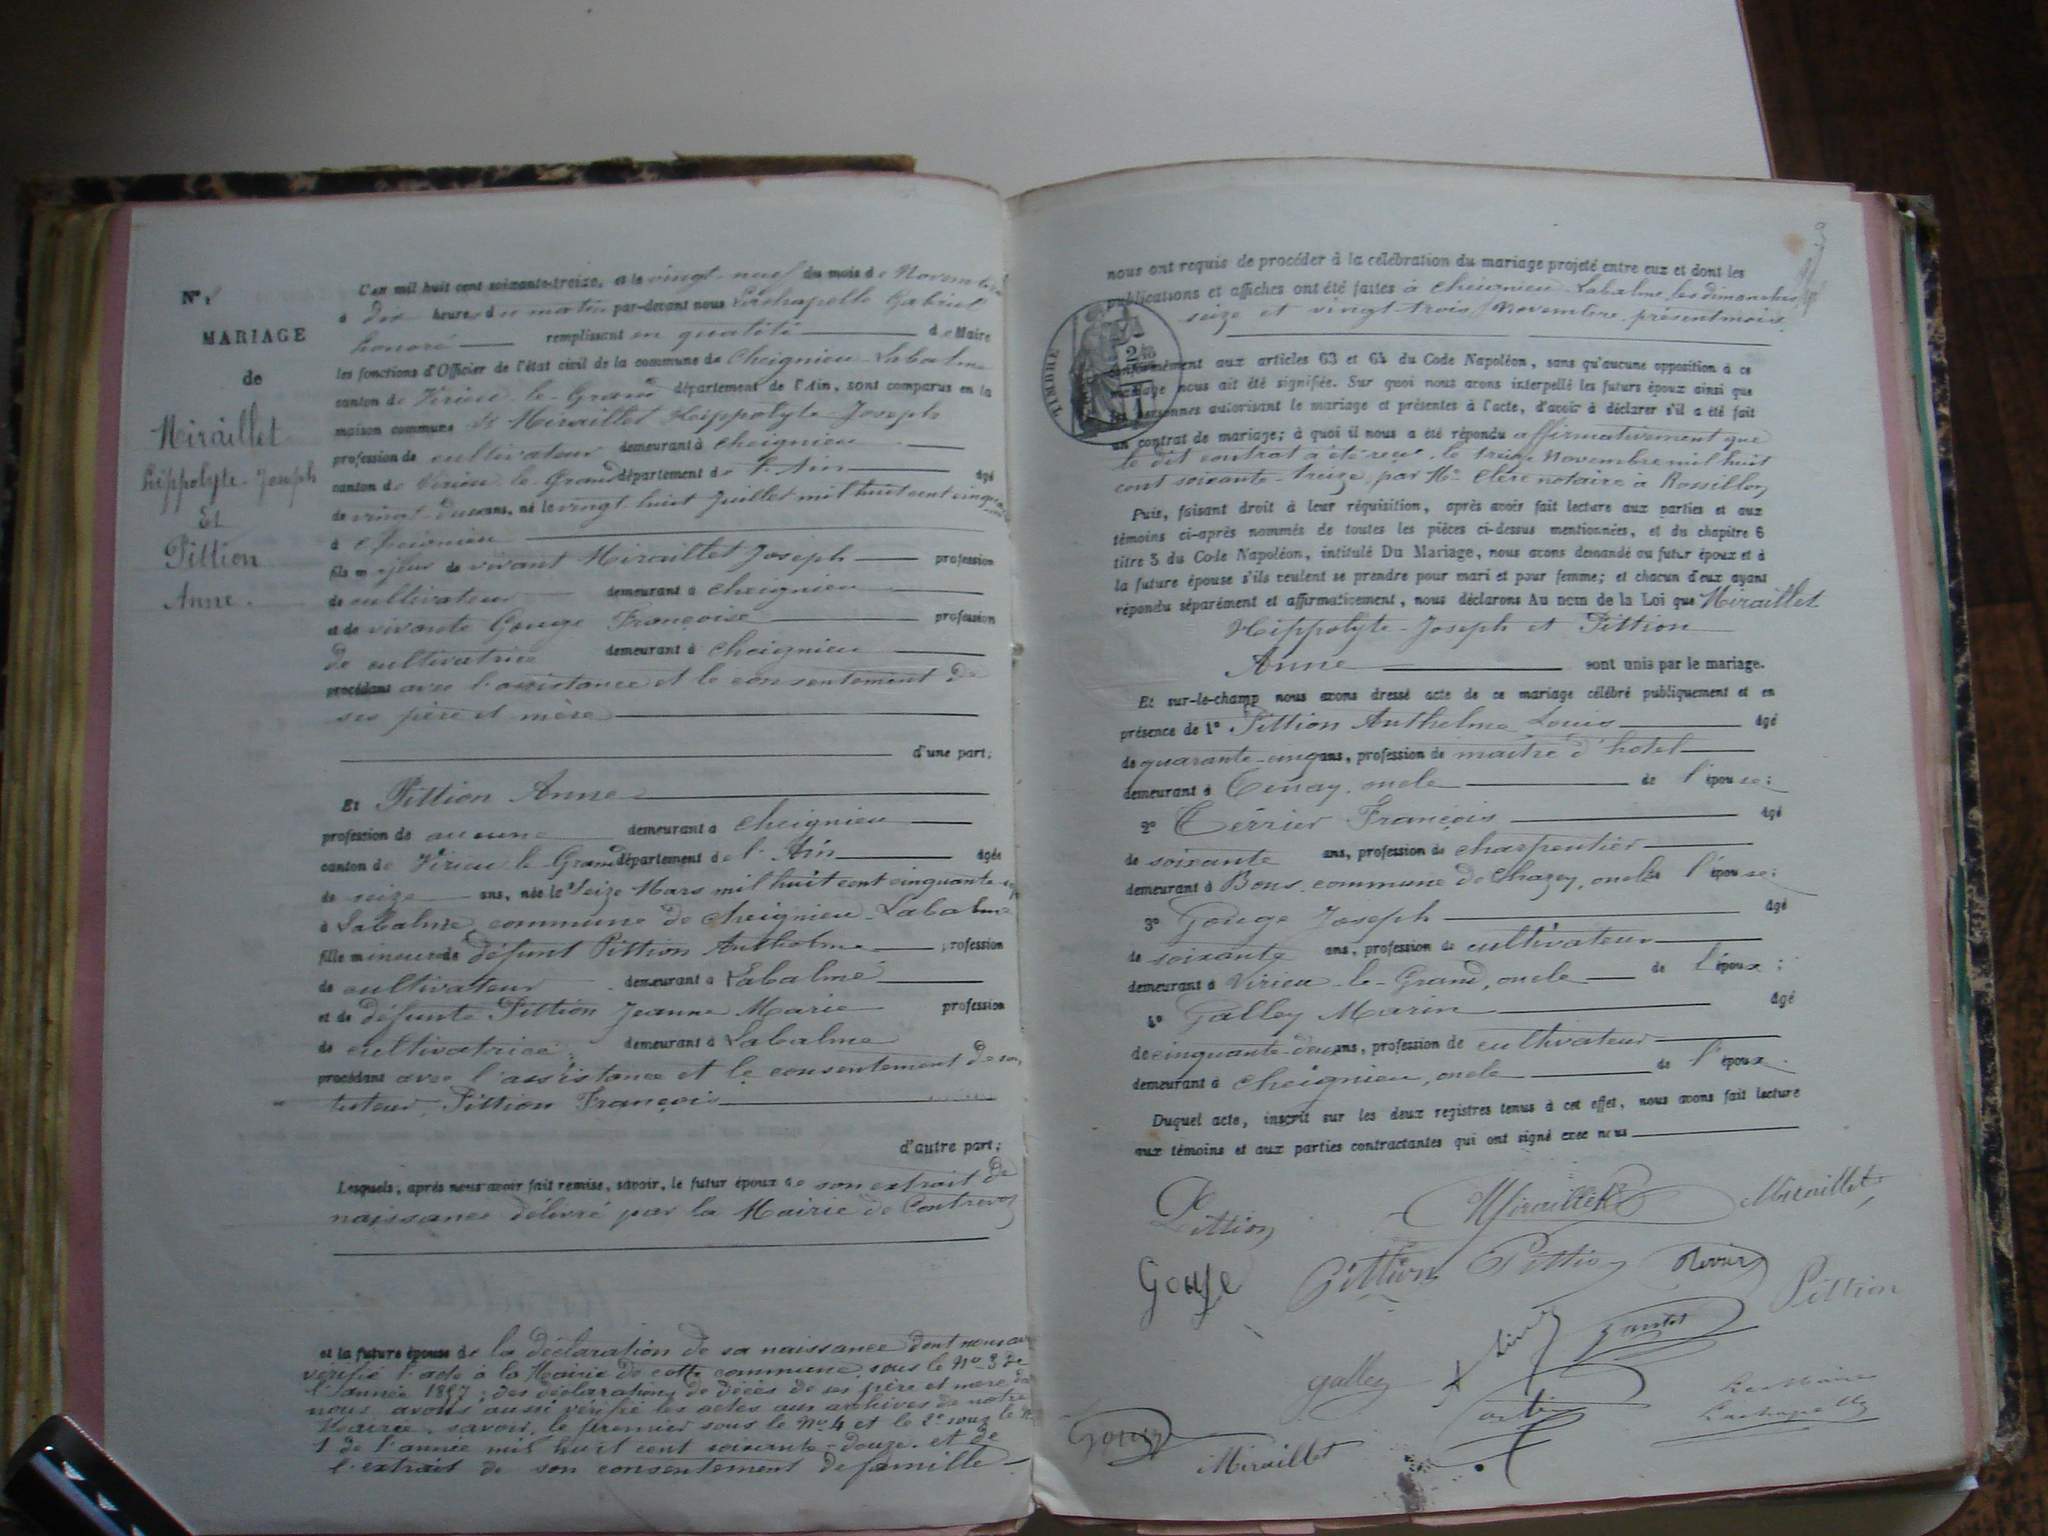 N°
MARIAGE
de
Miraillet
Hippolyte-Joseph
Et
Pittion
Anne.
L'an mil huit cent soixante-treize, et le vingt-neuf du mois de Novembre
à dix heures du matin par-devant nous Lachapelle Gabriel
honoré remplissant en qualité de Maire
les fonctions d'Officier de l'état civil de la commune de Cheignieu-Labalme
canton de Virieu-le-Grand département de l'Ain, sont comparus en la
maison commune Sr Miraillet Hippolyte-Joseph
profession de cultivateur demeurant à Cheignieu
canton de Virieu-le-Grand département de l'Ain âgé
de vingt-deux ans, né le vingt huit Juillet mil huit cent cinquante
à Cheignieu
fils majeur de vivant Miraillet Joseph profession
de cultivateur demeurant à Cheignieu
et de vivante Gouge Françoise profession
de cultivatrice demeurant à Cheignieu
procédant avec l'assistance et le consentement de
ses père et mère
d'une part;
Et Pittion Anne
profession de aucune demeurant à Cheignieu
canton de Virieu le Grand département de l'Ain âgée
de seize ans, née le Seize Mars mil huit cent cinquante-sept
à Labalme commune de Cheignieu-Labalme
fille mineure de défunt Pittion Anthelme profession
de cultivateur demeurant à Labalme
et de défunte Pittion Jeanne Marie profession
de cultivatrice demeurant à Labalme
procédant avec l'assistance et le consentement de son
tuteur, Pittion François
d'autre part;
Lesquels, après nous avoir fait remise, savoir, le futur époux de son extrait de
naissance délivré par la Mairie de Contrevoz
et la future épouse de la déclaration de sa naissance dont nous avons
vérifié l'acte à la Mairie de cette commune sous le N° 3 de
l'année 1857; des déclarations de décès de ses père et mère dont
nous avons aussi vérifié les actes aux archives de notre
Mairie, savoir, le premier sous le N° 4 et le 2e sous le N°
1 de l'année mil huit cent soixante-douze. et de
l'extrait de son consentement de famille
nous ont requis de procéder à la célébration du mariage projeté entre eux et dont les
publications et affiches ont été faites à Cheignieu-Labalme, les dimanches
seize et vingt-trois Novembre présent mois.
TIMBRE
conformément aux articles 63 et 64 du Code Napoléon, sans qu'aucune opposition à ce
mariage nous ait été signifiée. Sur quoi nous avons interpellé les futurs époux ainsi que
les personnes autorisant le mariage et présentes à l'acte, d'avoir à déclarer s'il a été fait
un contrat de mariage; à quoi il nous a été répondu affirmativement que
le dit contrat a été reçu, le treize Novembre mil huit
cent soixante-treize, par Me Clerc notaire à Rossillon
Puis, faisant droit à leur réquisition, après avoir fait lecture aux parties et aux
témoins ci-après nommés de toutes les pièces ci-dessus mentionnées, et du chapitre 6
titre 5 du Code Napoléon, intitulé Du Mariage, nous avons demandé au futur époux et à
la future épouse s'ils veulent se prendre pour mari et pour femme; et chacun d'eux ayant
répondu séparément et affirmativement, nous déclarons Au nom de la Loi que Miraillet
Hippolyte-Joseph et Pittion
Anne sont unis par le mariage.
Et sur-le-champ nous avons dressé acte de ce mariage célébré publiquement et en
présence de 1° Pittion Anthelme Louis âgé
de quarante-cinq ans, profession de maître d'hotel
demeurant à Tenay, oncle de l'épouse;
2° Terrier François âgé
de soixante ans, profession de charpentier
demeurant à Bons, commune de Chazey, oncle de l'épouse;
3° Gouge Joseph âgé
de soixante ans, profession de cultivateur
demeurant à Virieu-le-Grand, oncle de l'époux;
4° Galley Marin âgé
de cinquante-deux ans, profession de cultivateur
demeurant à Cheignieu, oncle de l'époux.
Duquel acte, inscrit sur les deux registres tenus à cet effet, nous avons fait lecture
aux témoins et aux parties contractantes qui ont signé avec nous
Pittion Miraillet Miraillet
Gouge Pittion Pittion Pittion
galley
Le Maire
Lachapelle
Gouge Miraillet